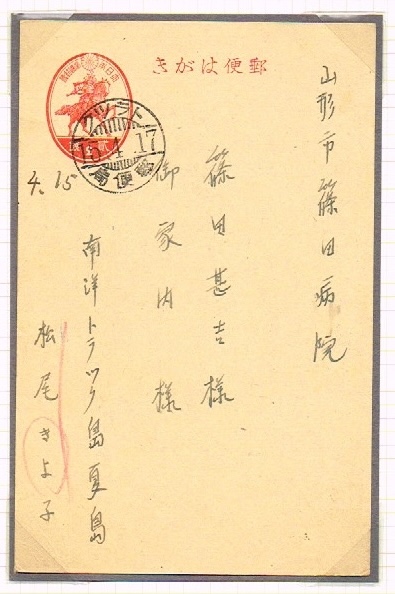 郵便はがき
山形市篠田病院
篠田甚吉様
御家内様
トラツク
15.4.17
郵便局
4.15
南洋トラック島夏島
松尾きよ子